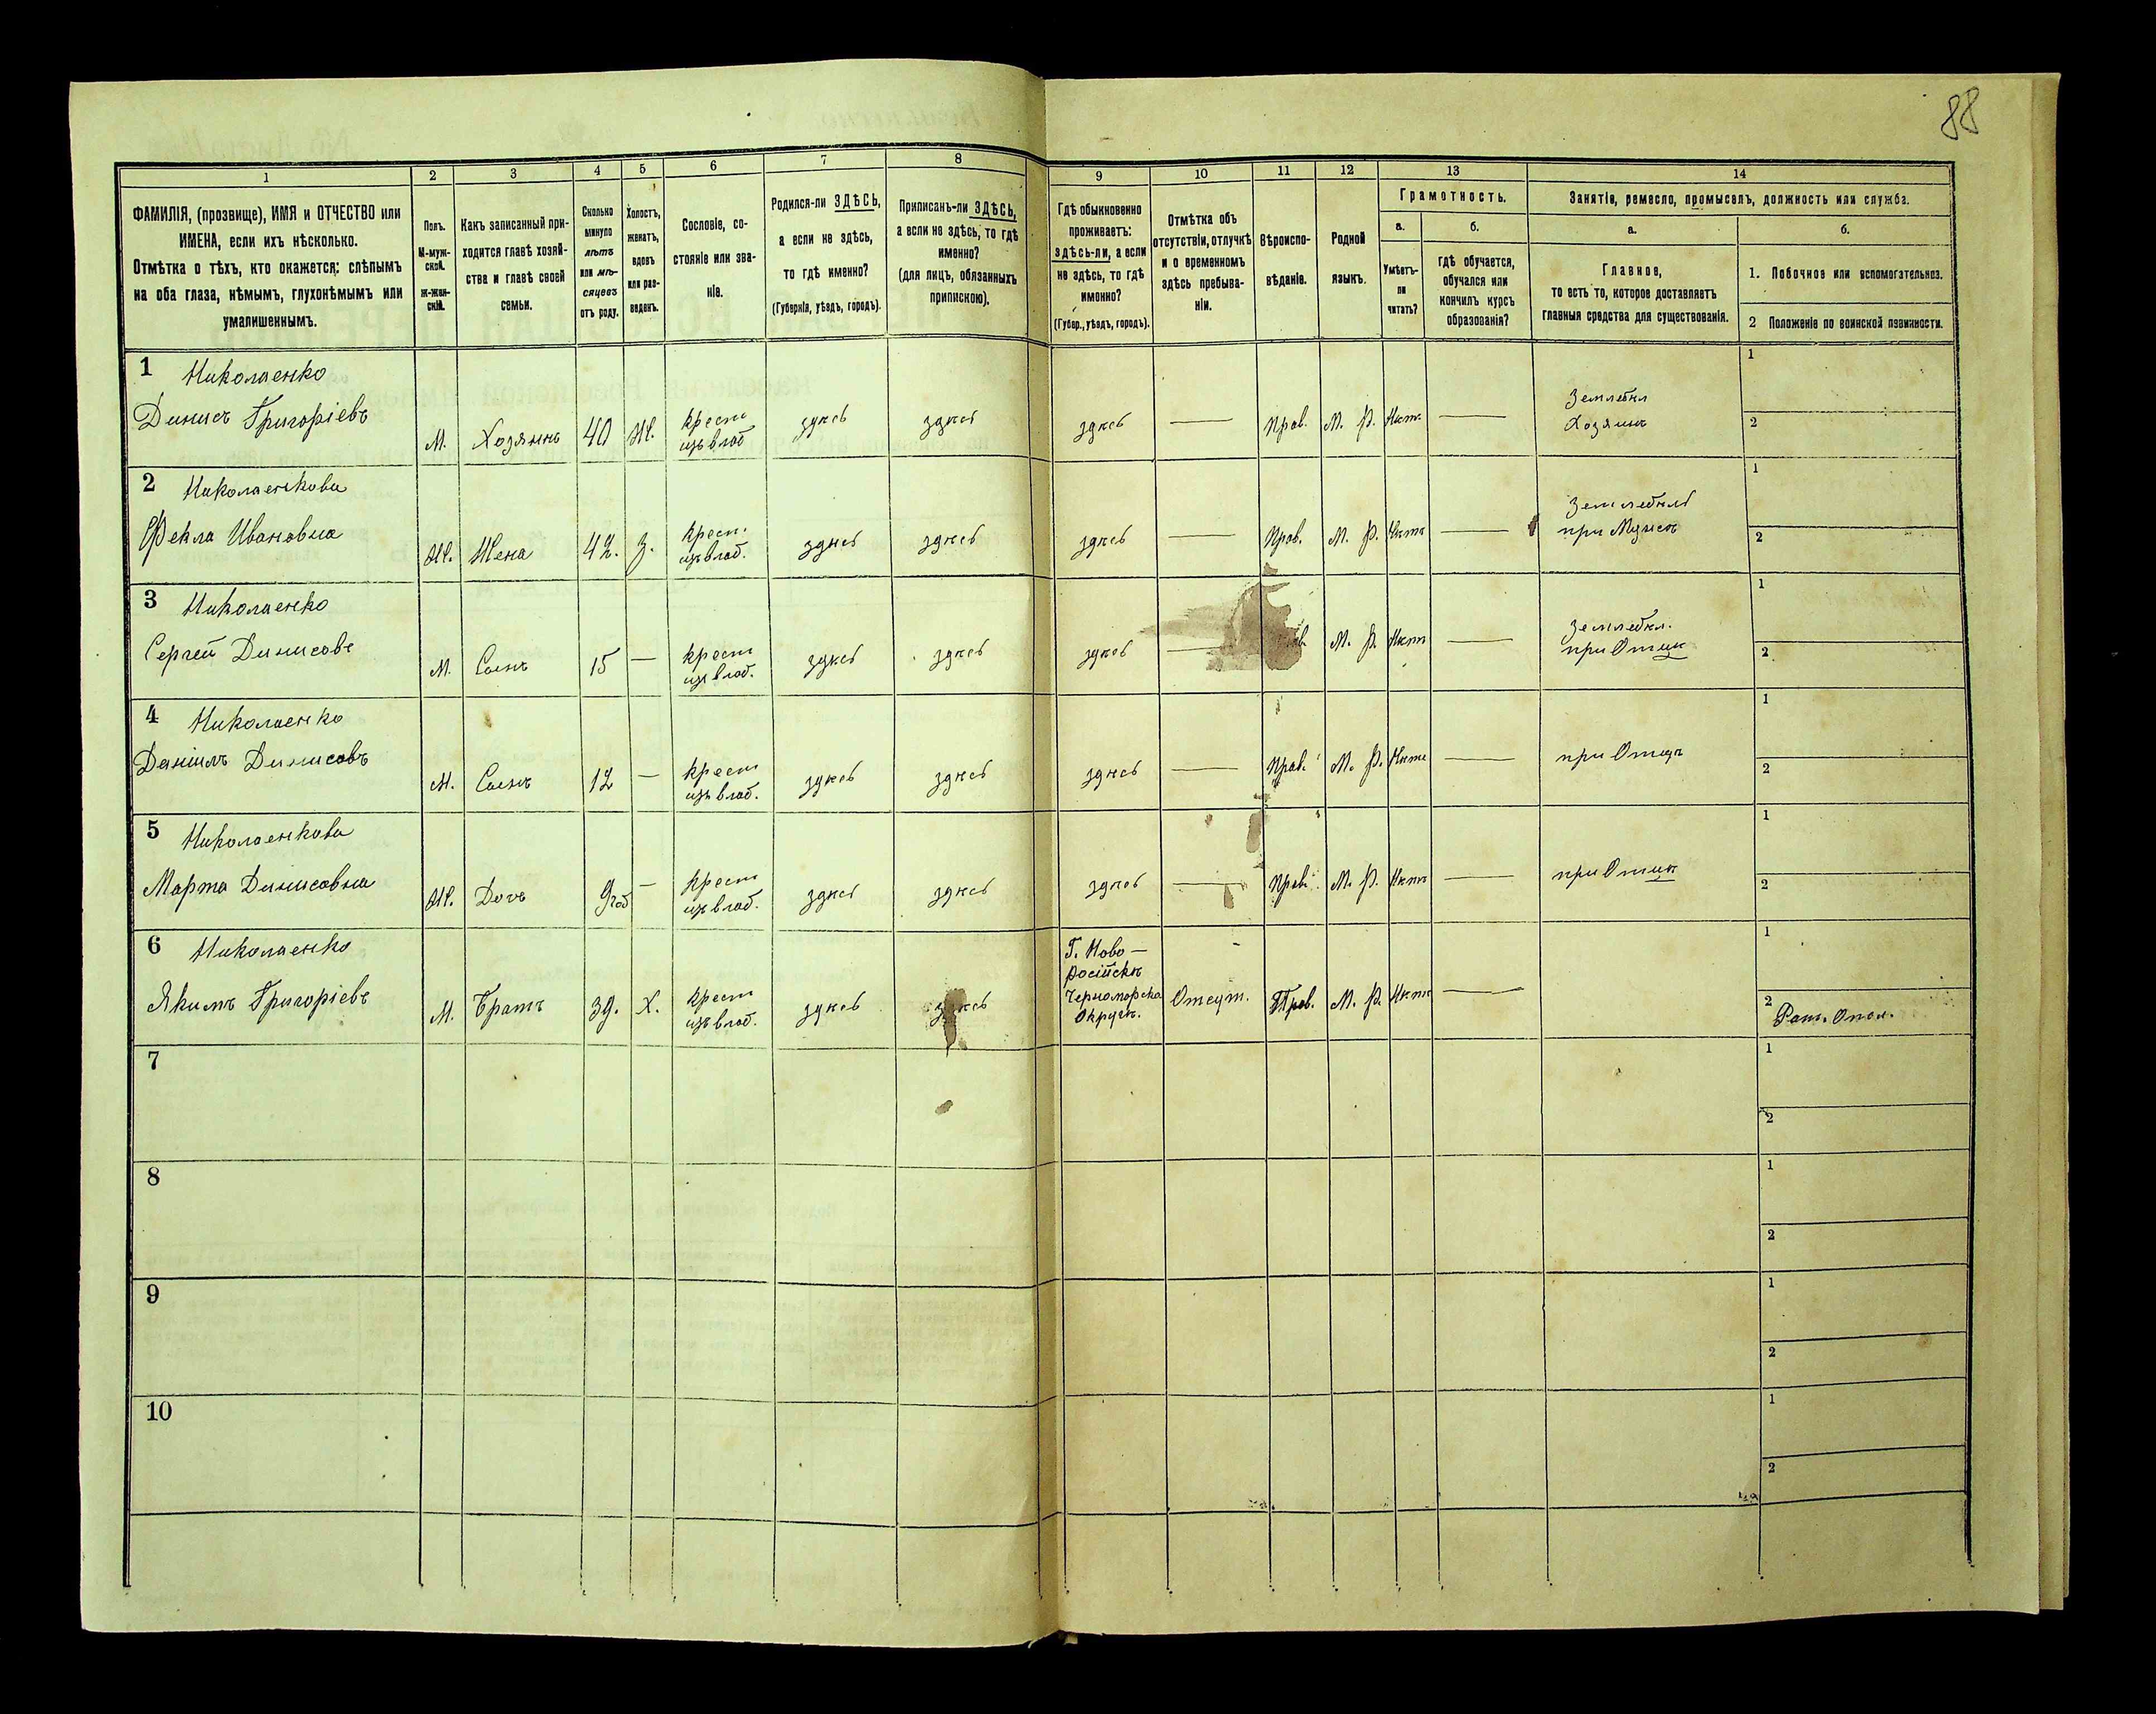 88
1
2
3
4
5
6
7
8
9
10
11
12
13
14
ФАМИЛІЯ, (прозвище), ИМЯ и ОТЧЕСТВО или
ИМЕНА, если ихъ нѣсколько.
Отмѣтка о тѣхъ, кто окажется: слѣпымъ
на оба глаза, нѣмымъ, глухонѣмымъ или
умалишеннымъ.
Полъ.
М-муж-
ской.
Ж-жен-
скій.
Какъ записанный при-
ходится главѣ хозяй-
ства и главѣ своей
семьи.
Сколько
минуло
лѣтъ
или мѣ-
сяцевъ
отъ роду.
Холостъ,
женатъ,
вдовъ
или раз-
веденъ.
Сословіе, со-
стояніе или зва-
ніе.
Родился-ли ЗДѢСЬ,
а если не здѣсь,
то гдѣ именно?
(Губернія, уѣздъ, городъ).
Приписанъ-ли ЗДѢСЬ,
а если не здѣсь, то гдѣ
именно?
(для лицъ, обязанныхъ
припискою).
Гдѣ обыкновенно
проживаетъ:
здѣсь-ли, а если
не здѣсь, то гдѣ
именно?
(Губер., уѣздъ, городъ).
Отмѣтка объ
отсутствіи, отлучкѣ
и о временномъ
здѣсь пребыва-
ніи.
Вѣроиспо-
вѣданіе.
Родной
языкъ.
Грамотность.
а.
Умѣетъ-
ли
читать?
б.
гдѣ обучается,
обучался или
кончилъ курсъ
образованія?
Занятіе, ремесло, промыселъ, должность или служба.
а.
Главное,
то есть то, которое доставляетъ
главныя средства для существованія.
б.
1. Побочное или вспомогательное.
2 Положеніе по воинской повинности.
1 Николаенко
Динисъ Григоріевъ
М. Хозяинъ 40 Ж. крест
изъ влад здѣсь здѣсь здѣсь — Прав. М. Р. Нѣт. — Землевѣл
Хозяинъ
1
2
2 Николаенкова
Фекла Ивановна
Ж. Жена 42. З. крест.
изъ влад. здѣсь здѣсь здѣсь — Прав. М. Р. Нѣт —
при Мужѣ
1
2
3 Николаенко
Сергей Динисовъ
М. Сынъ 15 — крест
изъ влад. здѣсь здѣсь здѣсь — М. Р. Нѣт — Землевѣл.
при Отцѣ
1
2
4 Николаенко
Даніилъ Динисовъ
М. Сынъ 12 — крест
изъ влад. здѣсь здѣсь здѣсь — Прав. М. Р. Нѣт — при Отцѣ
1
2
5 Николаенкова
Марта Динисовна
Ж. Дочь 9 год — крест
изъ влад. здѣсь здѣсь здѣсь — Прав. М. Р. Нѣт — при Отцѣ
1
2
6 Николаенко
Якимъ Григоріевъ
М. Братъ 39. Х. крест
изъ влад. здѣсь здѣсь Г. Ново-
російскъ
Черноморска
Округъ. Отсут. Прав. М. Р. Нѣт —
1
2 Рат. Опол.
7
1
2
8
1
2
9
1
2
10
1
2